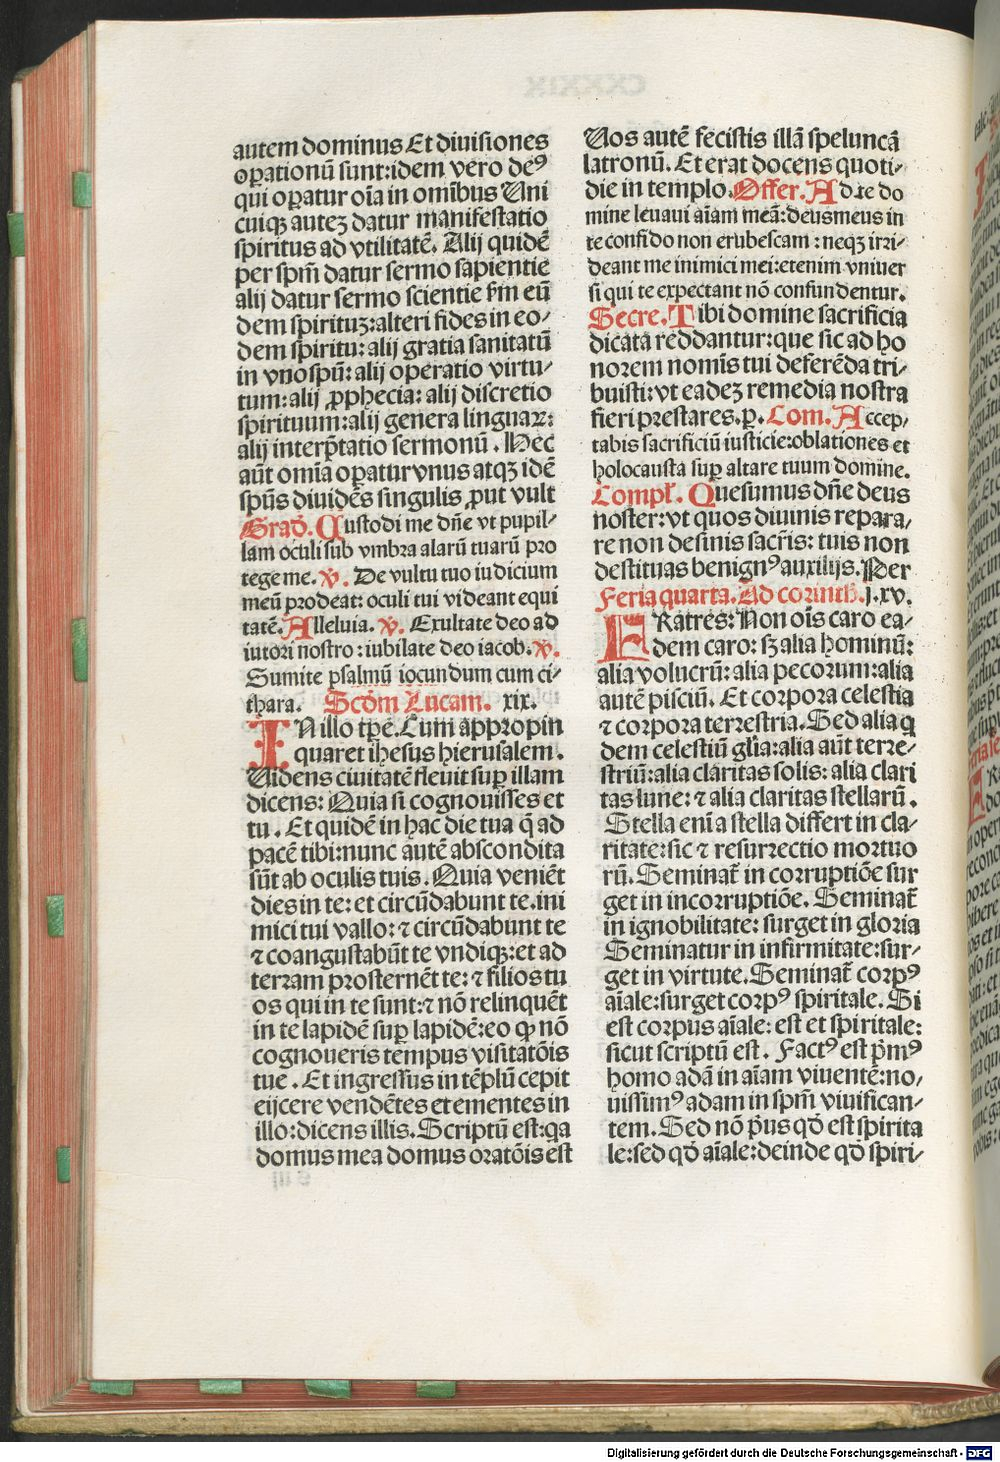 autem dominus Et diuisiones
oꝑationū sunt:idem vero deꝰ
qui oꝑatur oīa in omībus Uni
cuiqꝫ autez datur manifestatio
spiritus ad vtilitatē. Alij quidē
per spm̄ datur sermo sapientie
alij datur sermo scientie fm̄ eū
dem spirituꝫ:alteri fides in eo⸗
dem spiritu: alij gratia sanitatū
in vno spū: alij operatio virtu⸗
tum: alij ꝓphecia: alij discretio
spirituum: alij genera linguaꝝ:
alij interp̄tatio sermonū. Hec
aūt omīa oꝑatur vnus atqꝫ idē
spūs diuidēs singulis ꝓut vult
Grad̄. Custodi me dn̄e vt pupil⸗
lam oculi sub vmbra alarū tuarū pro
tege me. ℣. De vultu tuo iudicium
meū prodeat: oculi tui videant equi
tatē. Alleluia. ℣. Exultate deo ad
iutori nostro: iubilate deo iacob. ℣.
Sumite psalmū iocundum cum ci⸗
thara. Scd̄m Lucam. xix.
IN illo tp̄e. Cum appropin
quaret ihesus hierusalem.
Uidens ciuitatē fleuit suꝑ illam
dicens: Quia si cognouisses et
tu. Et quidē in hac die tua q̄ ad
pacē tibi:nunc autē abscondita
sūt ab oculis tuis. Quia veniēt
dies in te: et circūdabunt te. ini
mici tui vallo: ⁊ circūdabunt te
⁊ coangustabūt te vndiqꝫ: et ad
terram prosternēt te: ⁊ filios tu
os qui in te sunt: ⁊ nō relinquēt
in te lapidē suꝑ lapidē: eo ꝙ nō
cognoueris tempus visitatōis
tue. Et ingressus in tēplū cepit
eijcere vendētes et ementes in
illo: dicens illis. Scriptū est: qa
domus mea domus oratōis est
Uos autē fecistis illā speluncā
latronū. Et erat docens quoti⸗
die in templo. Offer. Ad te do
mine leuaui aīam meā: deus meus in
te confido non erubescam: neqꝫ irri⸗
deant me inimici mei: etenim vniuer
si qui te expectant nō confundentur.
Secre. Tibi domine sacrificia
dicata reddantur: que sic ad ho
norem nomīs tui deferēda tri⸗
buisti: vt eadeꝫ remedia nostra
fieri prestares. ꝑ. Com. Accep⸗
tabis sacrificiū iusticie: oblationes et
holocausta suꝑ altare tuum domine.
Compl̄. Quesumus dn̄e deus
noster: vt quos diuinis repara⸗
re non desinis sacr̄is: tuis non
destituas benignꝰ auxilijs. Per
Feria quarta. Ad corinth̄. j. xv.
FRatres: Non oīs caro ea⸗
dem caro: sꝫ alia hominū:
alia volucrū: alia pecorum: alia
autē pisciū. Et corpora celestia
⁊ corpora terrestria. Sed alia q
dem celestiū gl̄ia: alia aūt terre⸗
striū: alia claritas solis: alia clari
tas lune: ⁊ alia claritas stellarū.
Stella enī a stella differt in cla⸗
ritate: sic ⁊ resurrectio mortuo
rū. Seminat̄ in corruptiōe sur
get in incorruptiōe. Seminat̄
in ignobilitate: surget in gloria
Seminatur in infirmitate: sur⸗
get in virtute. Seminat̄ corpꝰ
aīale: surget corpꝰ spiritale. Si
est corpus aīale: est et spiritale:
sicut scriptū est. Factꝰ est p̄mꝰ
homo adā in aīam viuentē: no⸗
uissimꝰ adam in spm̄ viuifican⸗
tem. Sed nō p̄us qd̄ est spirita
le: sed qd̄ aīale: deinde qd̄ spiri⸗
Digitalisierung gefördert durch die Deutsche Forschungsgemeinschaft - DFG